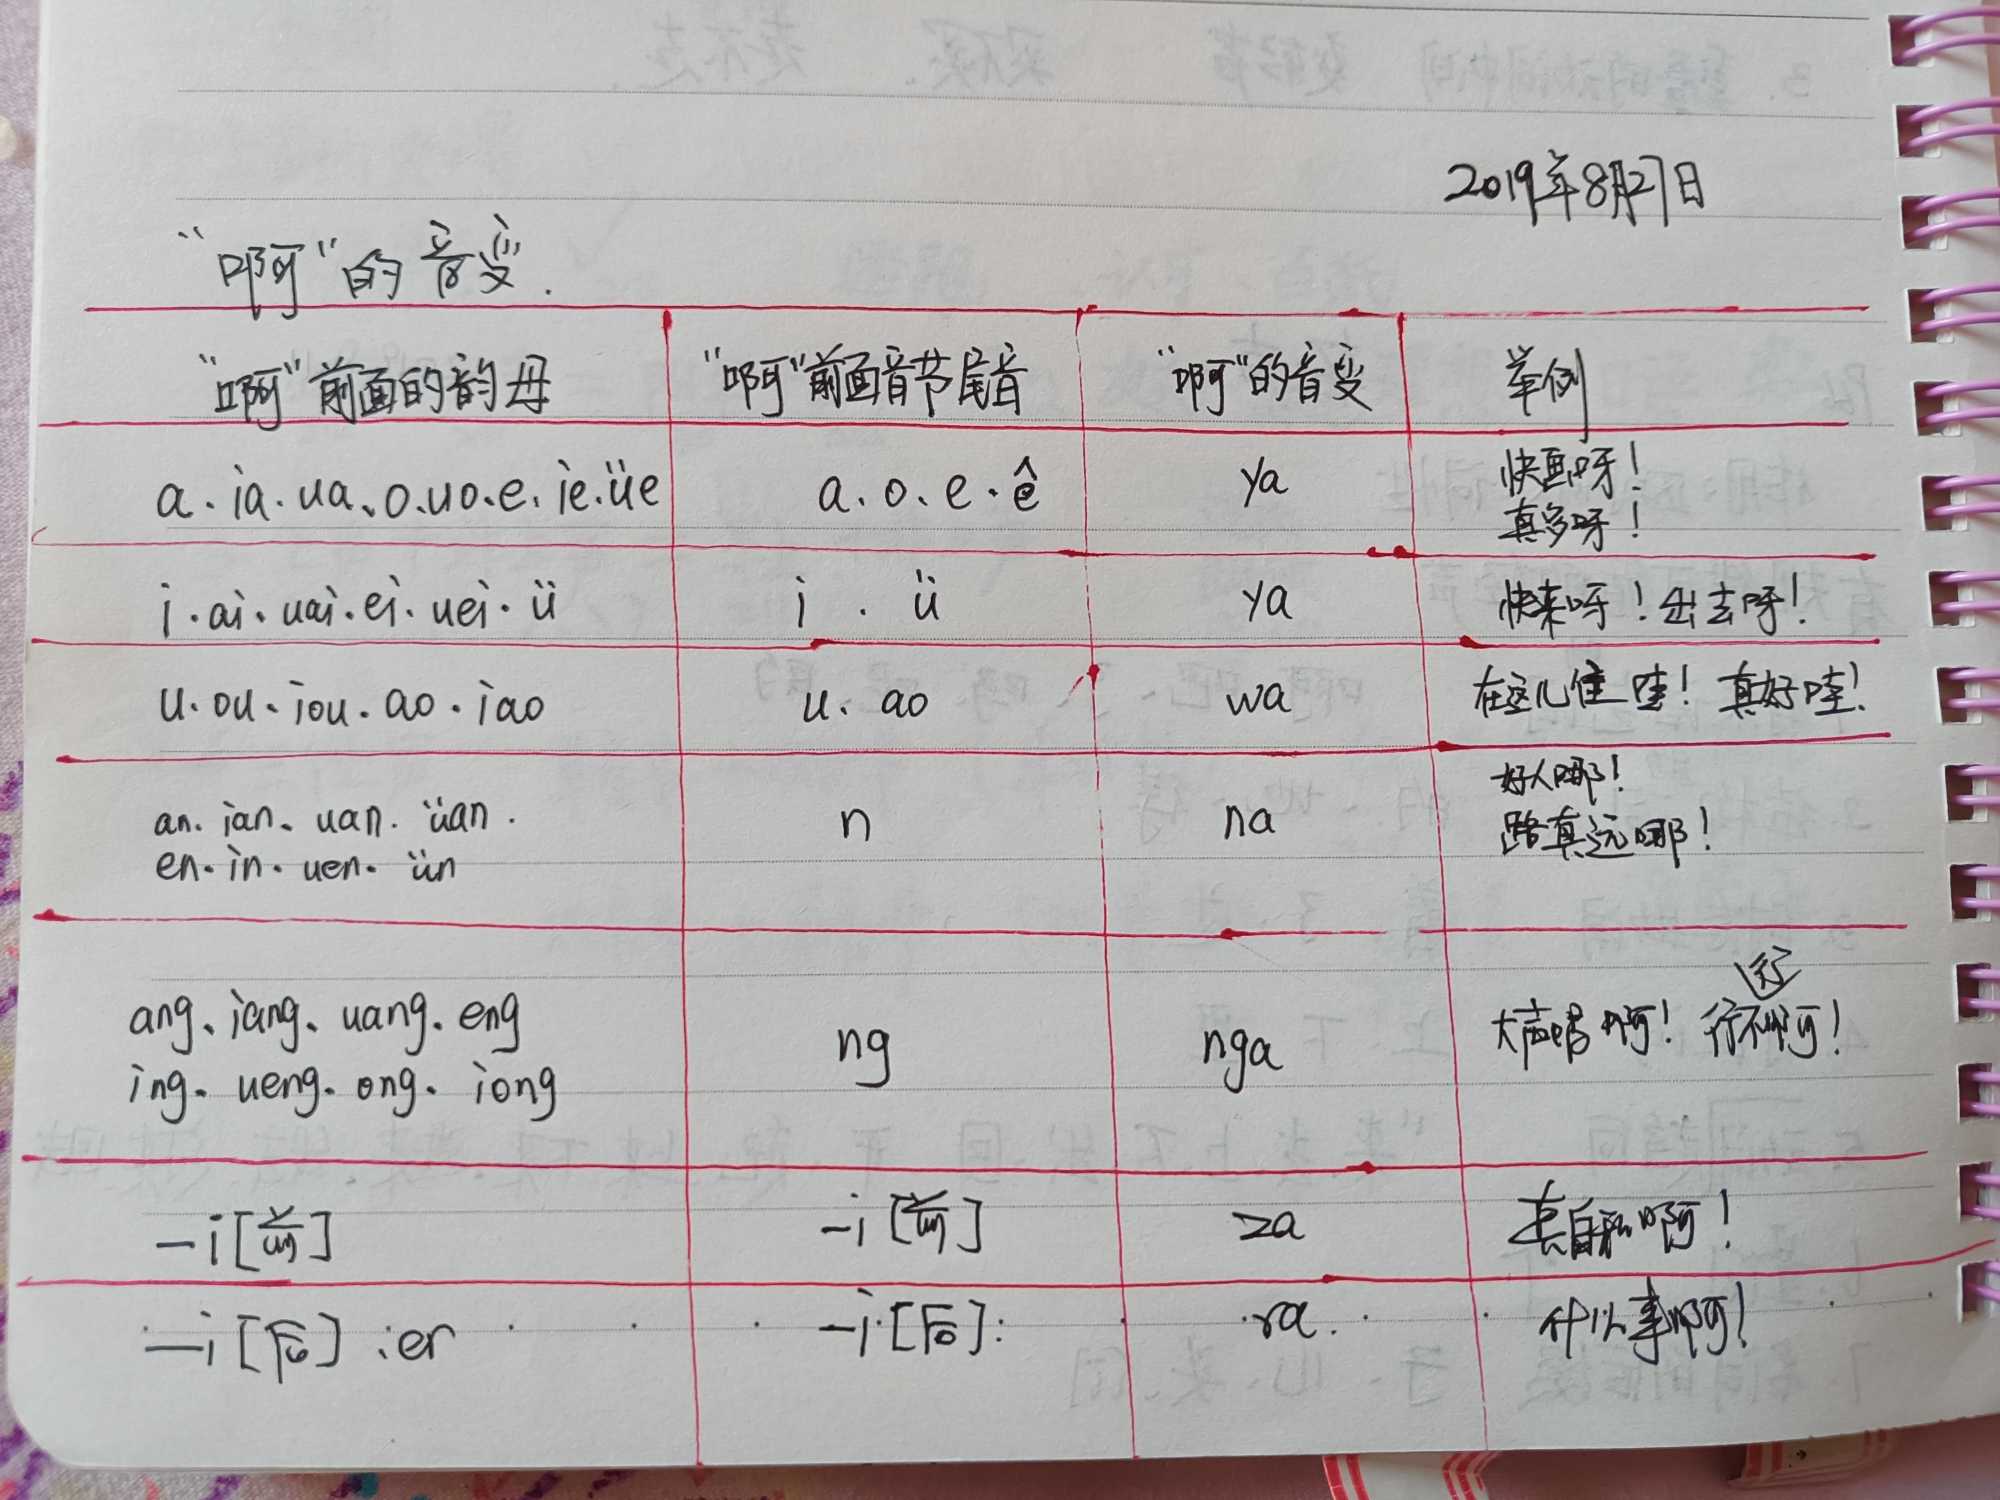 2019年8月27日
“啊”的音变.
“啊”前面的韵母 “啊”前面音节尾音 “啊”的音变 举例
a.ia.ua、o.uo.e.ie.üe a.o.e.ê ya 快画呀!
真多呀!
i.ai.uai.ei.uei.ü i . ü ya 快来呀!出去呀!
u.ou.iou.ao.iao u.ao wa 在这儿住哇!真好哇!
an.ian、uan.üan. n na 好人哪!
en.in.uen.ün 路真远哪!
ang、iang、uang.eng ng nga 大声唱啊!行不啊!
ing.ueng.ong.iong
-i[前] -i[前] za 真自私啊!
-i[后].er -i[后] ra 什么事啊!